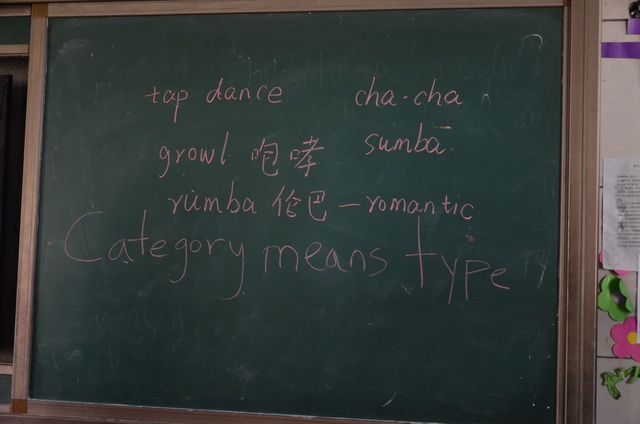 tap dance cha-cha
growl 咆哮 sumba
rumba 伦巴 – romantic
Category means type